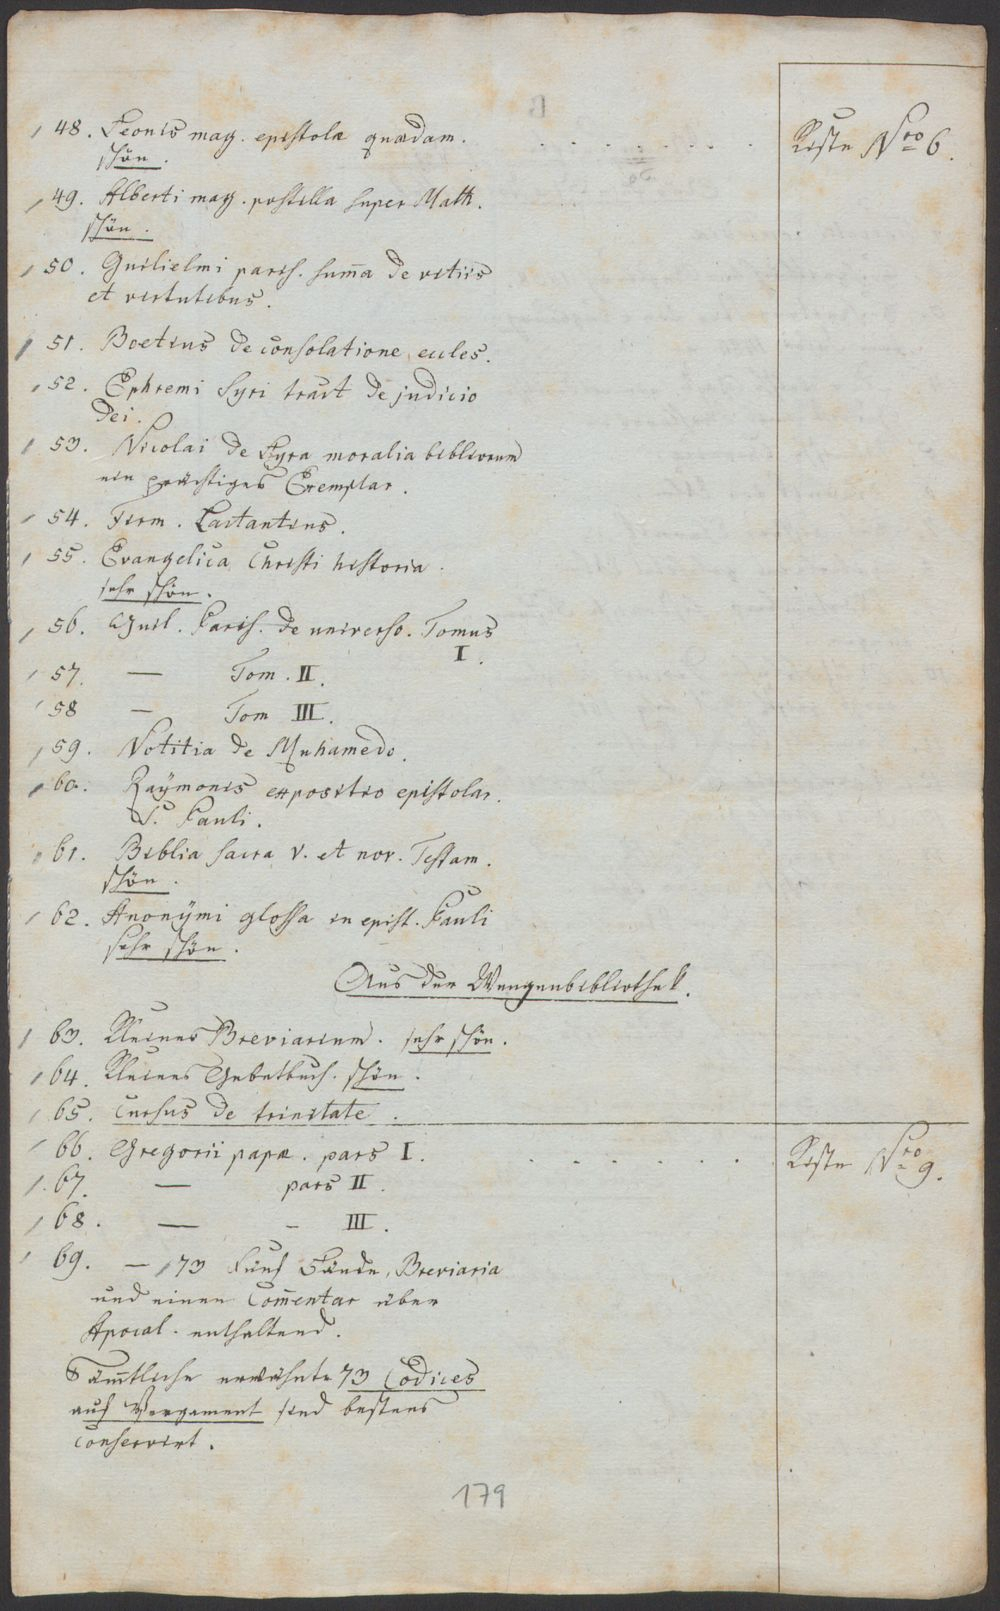 48. Leonis mag. epistolæ quædam. . . . . . . . Kiste Nro 6.
schön.
49. Alberti mag. postilla super Math.
schön.
50. Guilielmi paris. sum̄a de vitiis
et virtutibus.
51. Boetius de consolatione eccles.
52. Ephremi Syri tract de judicio
Dei.
53. Nicolai de Lyra moralia bibliorum
ein prächtiges Exemplar.
54. Firm. Lactantius.
55. Evangelica Christi historia.
sehr schön.
56. Guil. Paris. de universo. Tomus
I.
57. — Tom. II.
58 — Tom III.
59. Notitia de Muhamedo.
60. Haÿmonis expositio epistolar.
S. Pauli.
61. Biblia sacra v. et nov. Testam.
schön.
62. Anonÿmi glossa in epist. Pauli
sehr schön.
Aus der Wengenbibliothek.
63. Kleines Breviarium. sehr schön.
64. Kleines Gebetbuch. schön.
65. Cursus de trinitate.
66. Gregorii papæ. pars I. . . . . . . . Kiste Nro 9.
67. — pars II.
68. — – III.
69. — 73 Fünf Bände, Breviaria
und einen Com̄entar über
Apocal. enthaltend.
Säm̄tliche erwähnte 73 Codices
auf Pergament sind bestens
conservirt.
179